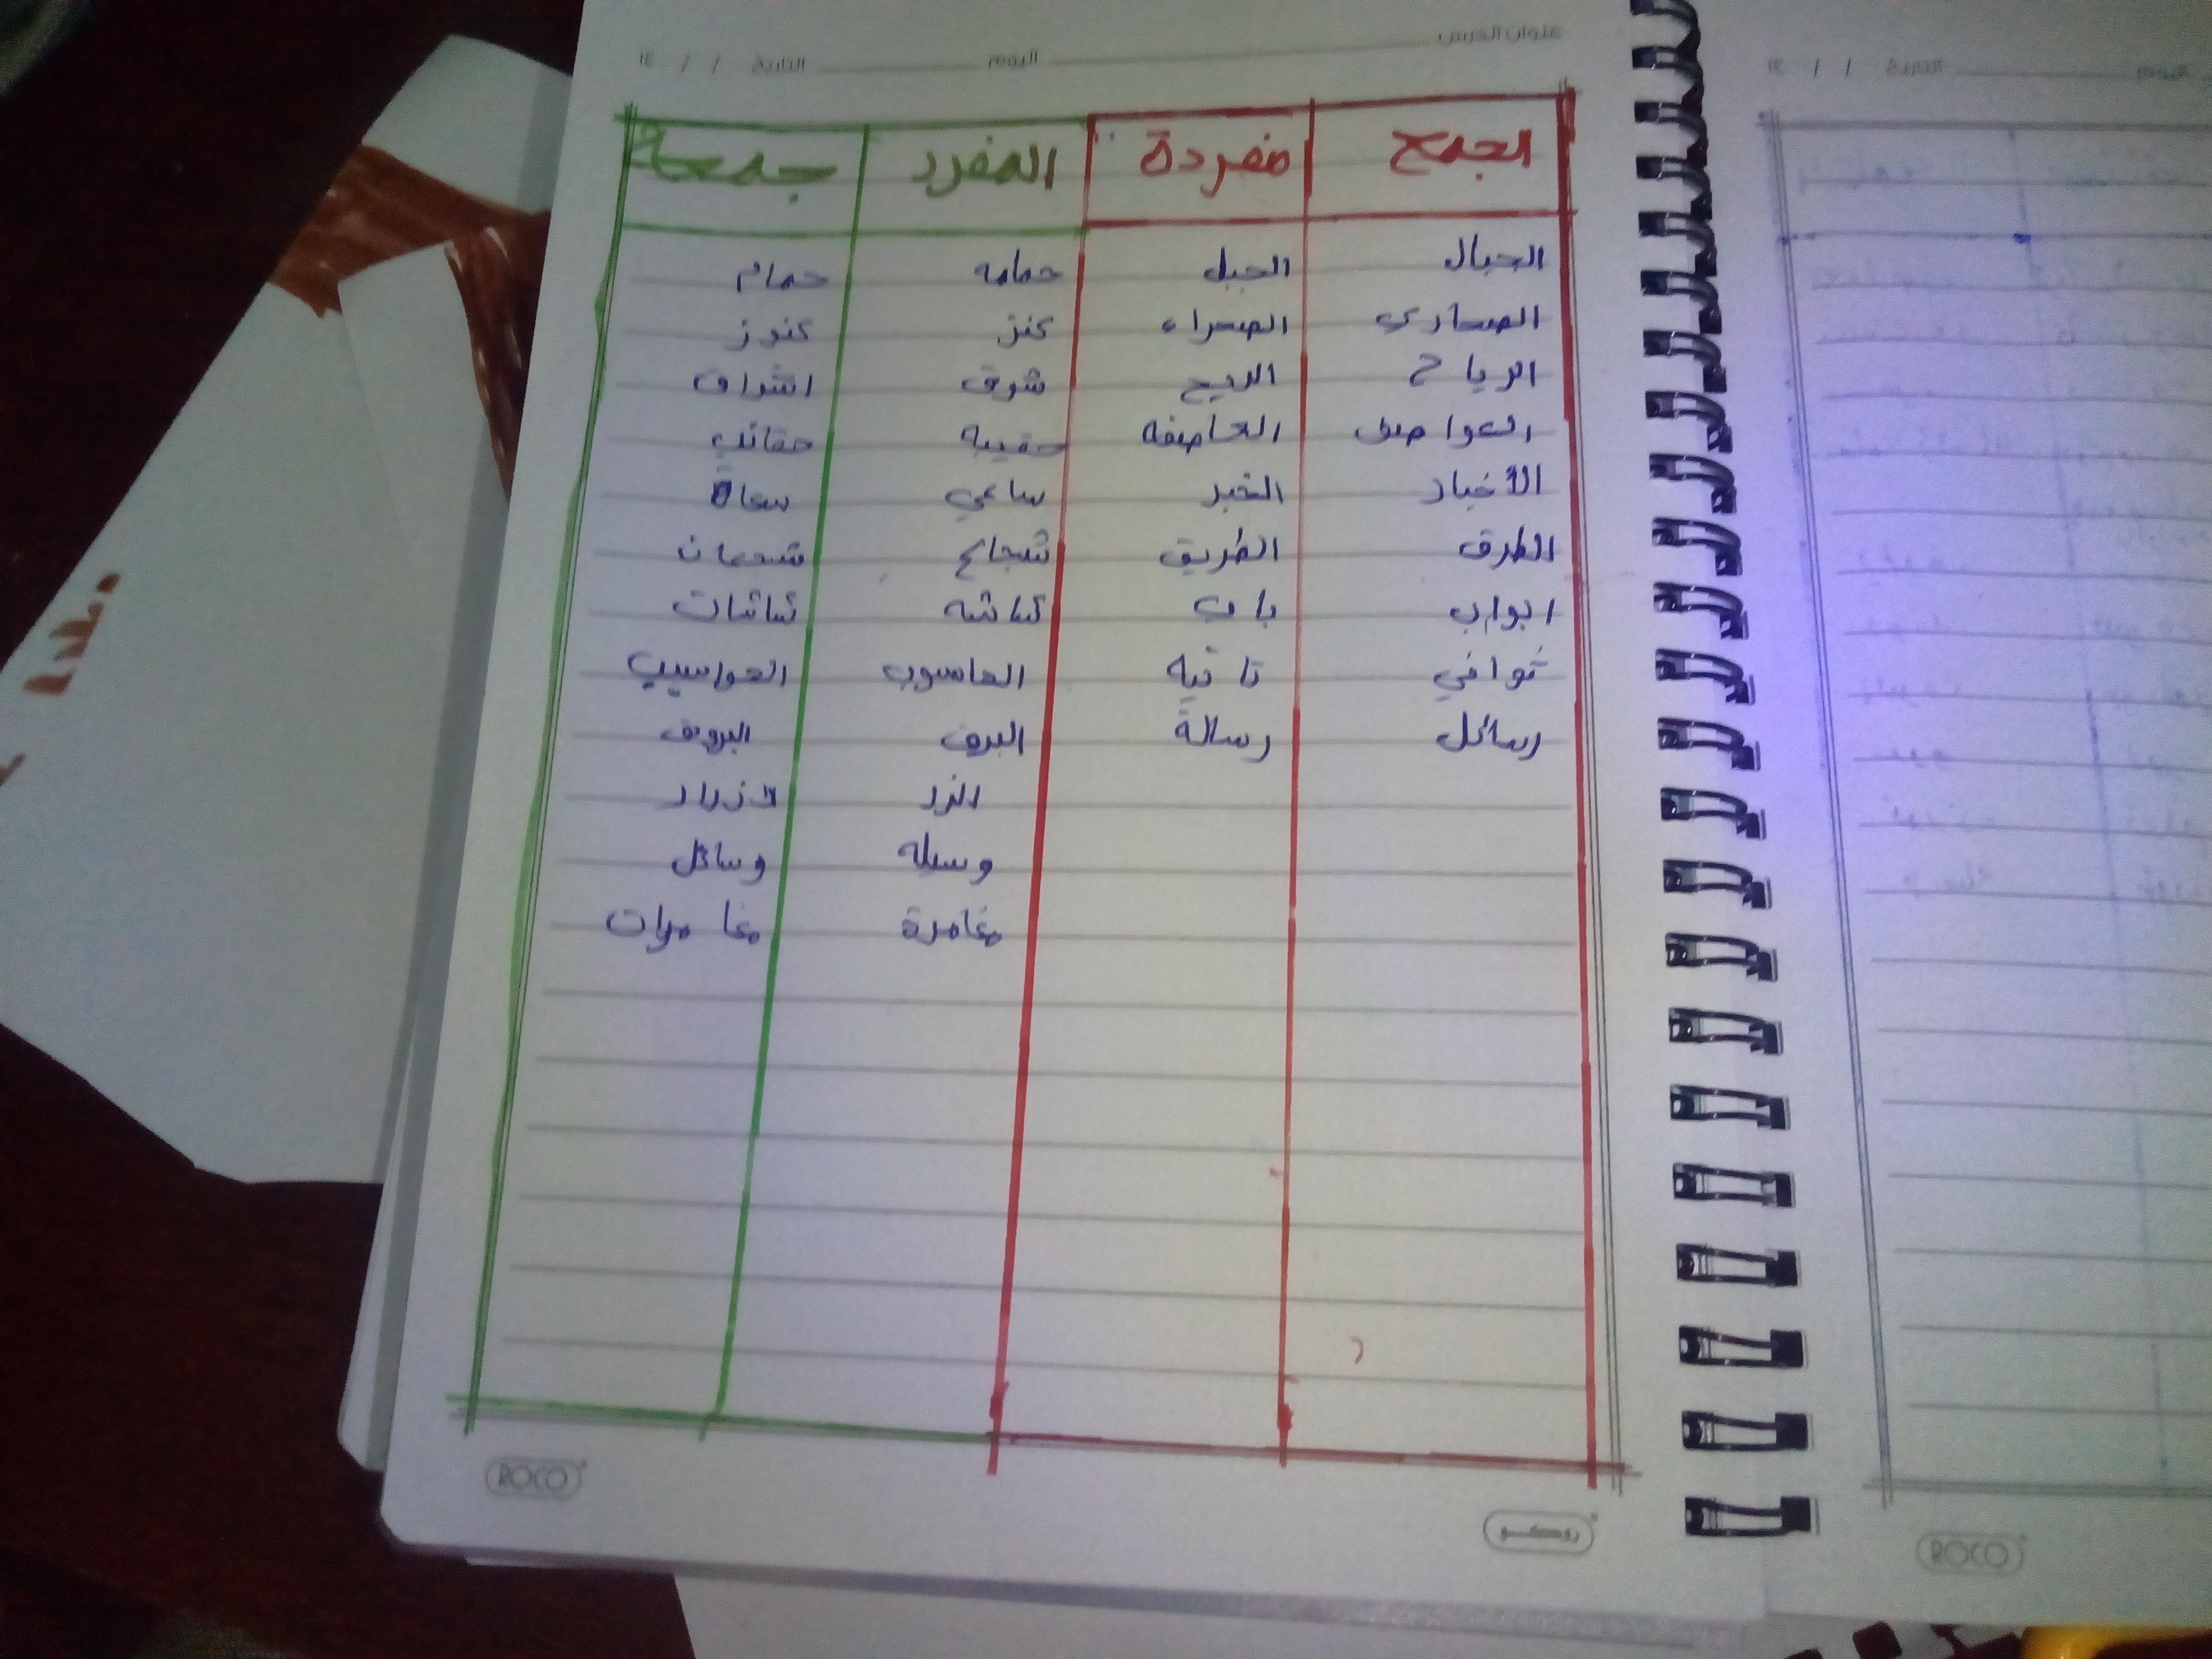 عنوان الدرس
اليوم التاريخ / / ١٤
الجمع مفردة المفرد جمعة
الجبال الجبل حمامه حمام
الصحاري الصحراء كنز كنوز
الرياح الريح شوق اشواق
العواصف العاصفه حقيبه حقائب
الأخبار الخبر ساعي سعاة
الطرق الطريق شجاع شجعان
ابواب باب شاشه شاشات
ثواني ثانيه الحاسوب الحواسيب
رسائل رسالة البرق البروق
الزر الازرار
وسيله وسائل
مغامرة مغامرات
ROCO
روكو
ROCO